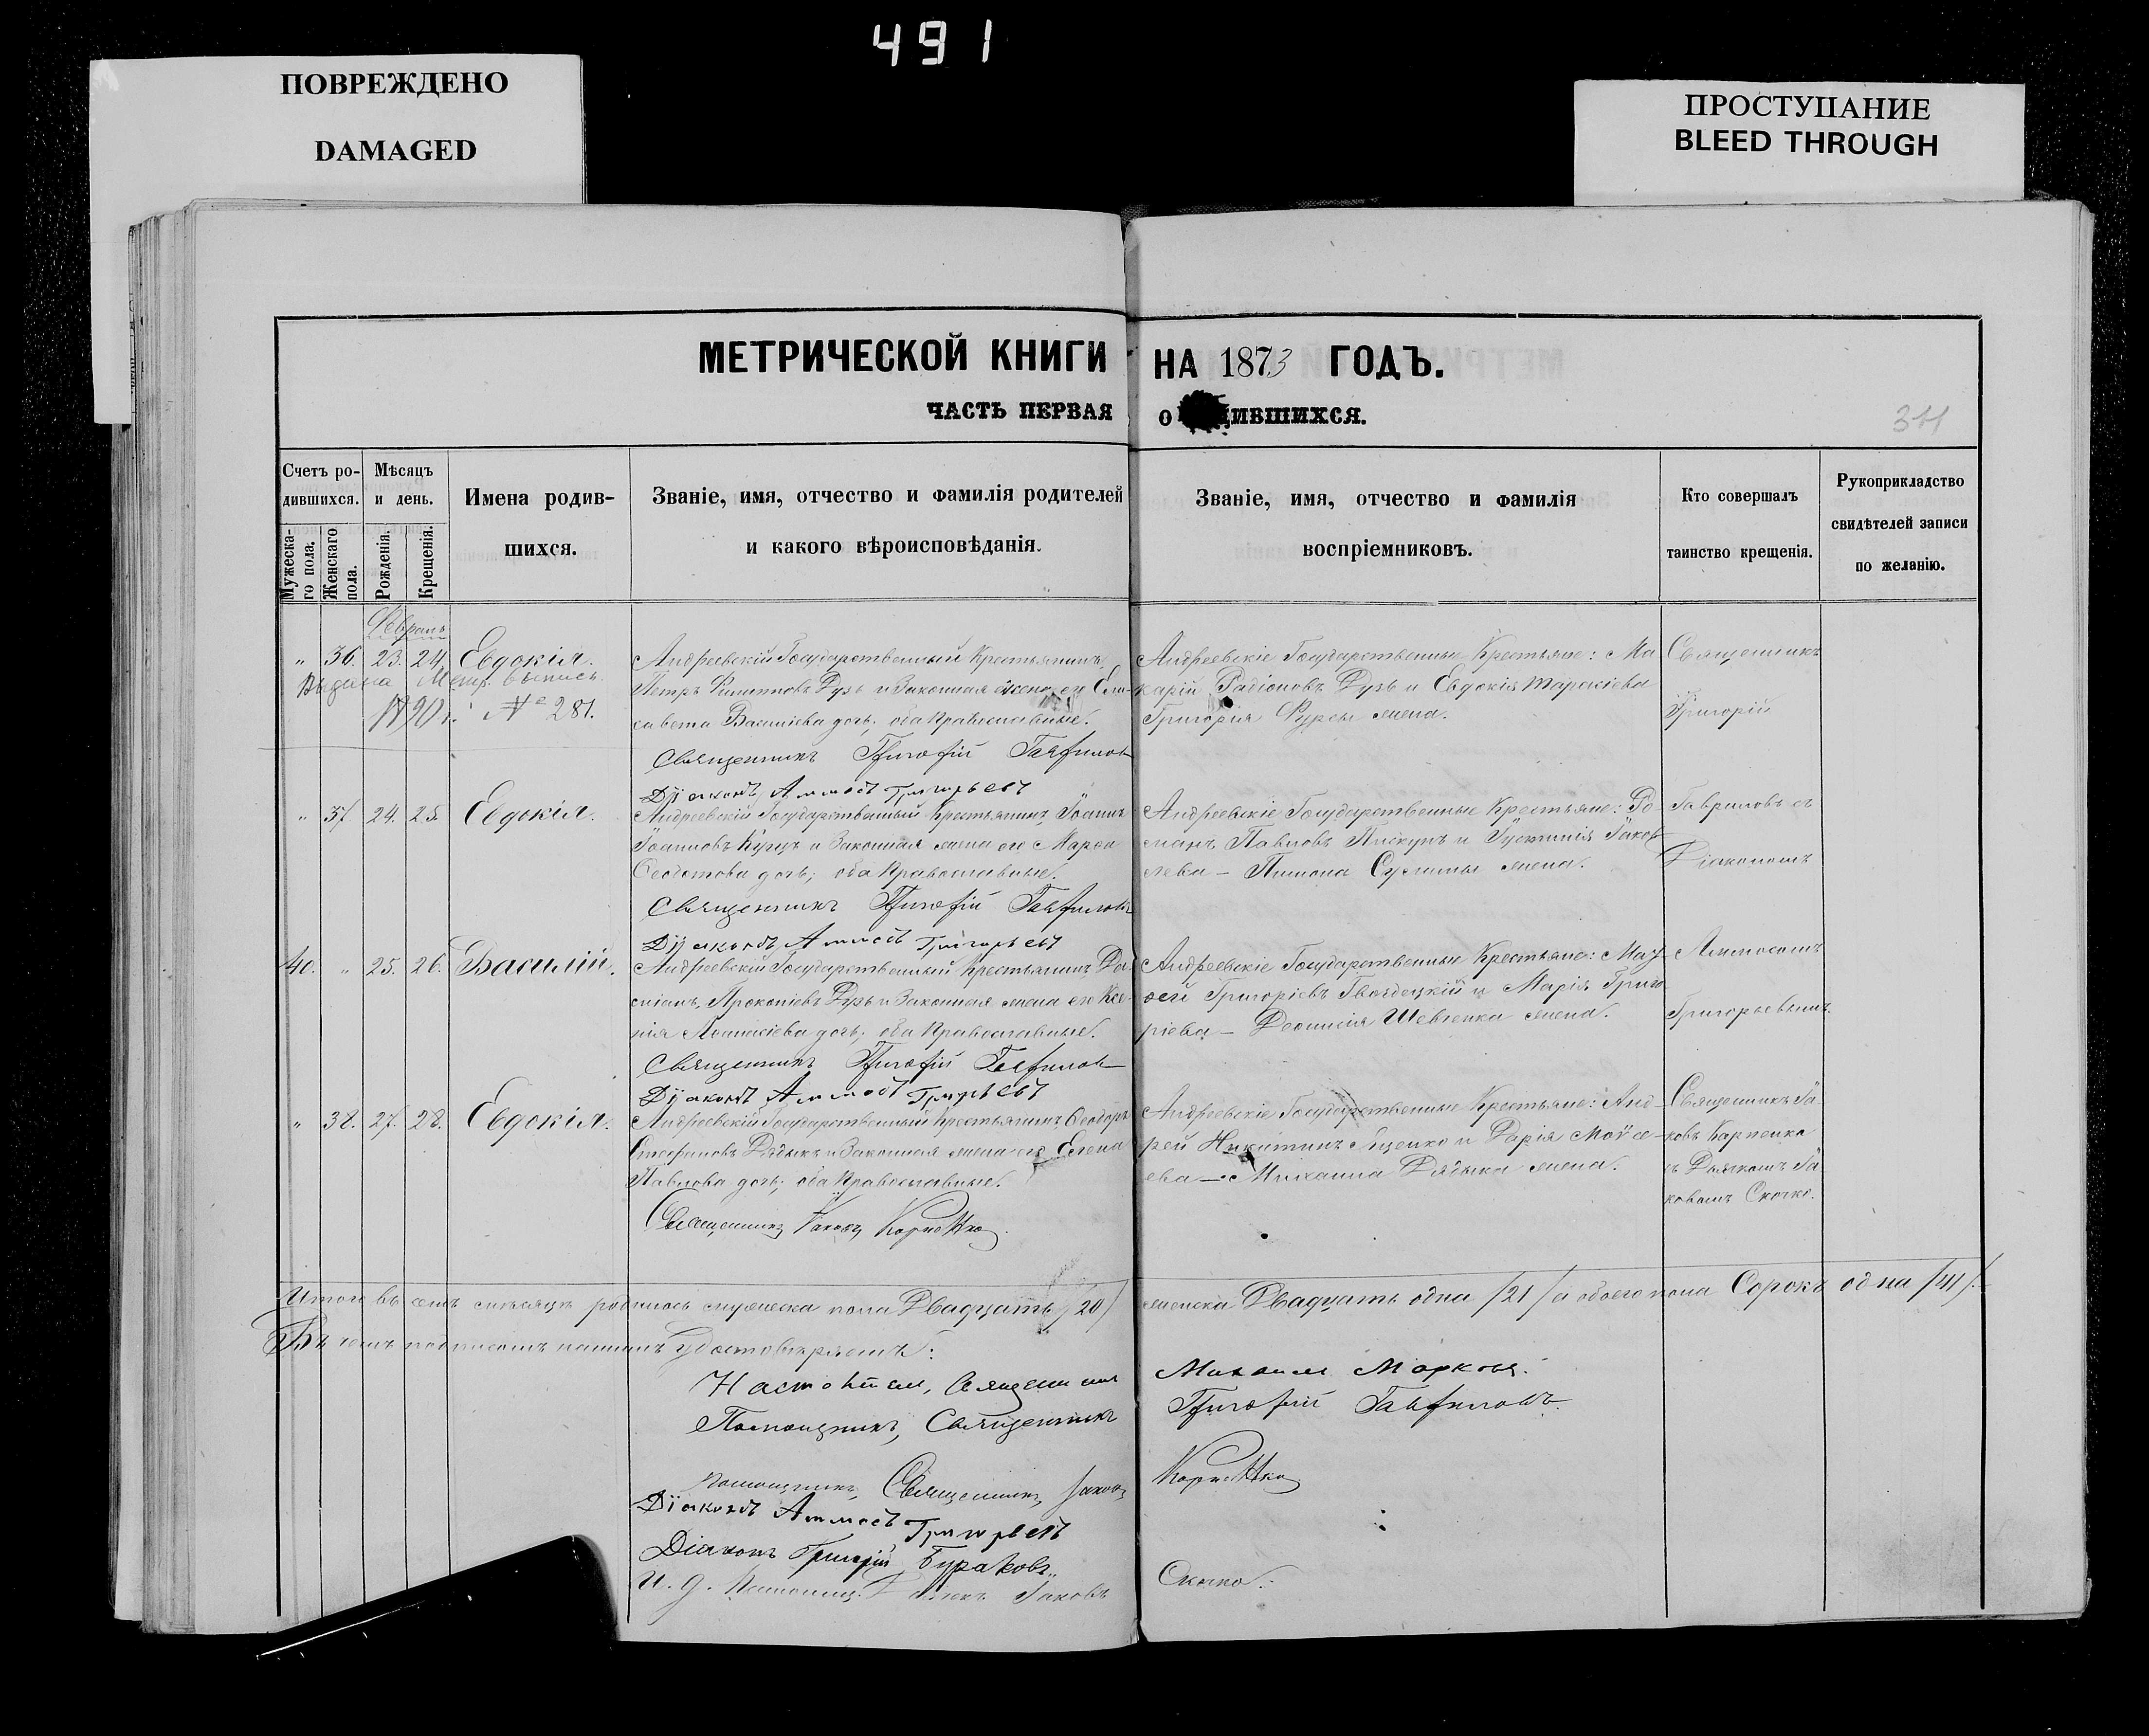 491
ПОВРЕЖДЕНО
DAMAGED
ПРОСТУПАНИЕ
BLEED THROUGH
МЕТРИЧЕСКОЙ КНИГИ НА 1873 ГОДЪ.
ЧАСТЬ ПЕРВАЯ О ДИВШИХСЯ.
Счетъ ро-
дившихся.
Мужеска-
го пола.
Женскаго
пола.
Мѣсяцъ
и день.
Рожденія.
Крещенія.
Имена родив-
шихся.
Званіе, имя, отчество и фамилія родителей
и какого вѣроисповѣданія.
Званіе, имя, отчество и фамилія
воспріемниковъ.
Кто совершалъ
таинство крещенія.
Рукоприкладство
свидѣтелей записи
по желанію.
" 36. 23. 24. Евдокія.
Выдана Метр. выпись
1890 г. № 281.
Андреевскій Государственный Крестьянинъ,
Петръ Филипповъ Рузь и Законная жена его Ели-
савета Василіева дочь; оба Православные.
Священникъ Григорій Гавриловъ
Діаконъ Аммосъ Григорьевъ
Андреевскіе Государственные Крестьяне: Ма
карій Радіоновъ Рузь и Евдокія Тарасіева
Григорія Фурсы жена.
Священникъ
Григорій
" 37. 24. 25. Евдокія.
Андреевскій Государственный Крестьянинъ Іоаннъ
Іоанновъ и Законная жена его Марѳа
Ѳеодотова дочь; оба Православные.
Священникъ Григорій Гавриловъ
Діаконъ Аммосъ Григорьевъ
Андреевскіе Государственные Крестьяне: Ро
манъ Павловъ Пискунъ и Іустинія Іаков
лева — жена.
Гавриловъ съ
Діакономъ
40. " 25. 26. Василій.
Андреевскій Государственный Крестьянинъ Да-
міанъ Прокопіевъ Рузь и Законная жена его Ксе-
нія Аѳанасіева дочь; оба Православные.
Священникъ Григорій Гавриловъ
Діаконъ Аммосъ Григорьевъ
Андреевскіе Государственные Крестьяне:
Григоріевъ Гвоздецкій и Марія Григо
ріева — Діонисія Шевченка жена.
Аммосомъ
Григорьевымъ.
" 38. 27. 28. Евдокія.
Андреевскій Государственный Крестьянинъ Ѳеодоръ
Стефановъ и Законная жена его Елена
Павлова дочь; оба Православные.
Священникъ Іаковъ Карпенко
Андреевскіе Государственные Крестьяне: Анд-
рей Никитинъ Яценко и Дарія Мойсе-
ева — Михаила жена.
Священникъ Іа-
ковъ Карпенко
съ Дьячкомъ Іа
ковомъ Скочко.
Итого въ семъ мѣсяцѣ родилось мужеска пола Двадцать /20/ женска Двадцать одна /21/ а обоего пола Сорокъ одна /41/.
Въ чемъ подписомъ нашимъ удостовѣряемъ:
Настоятель, Священникъ Михаилъ Марковъ.
Помощникъ, Священникъ Григорій Гавриловъ.
Помощникъ, Священникъ Іаковъ Карпенко
Діаконъ Аммосъ Григорьевъ
Діаконъ Григорій Бураковъ.
И. д. Іаковъ Скочко.